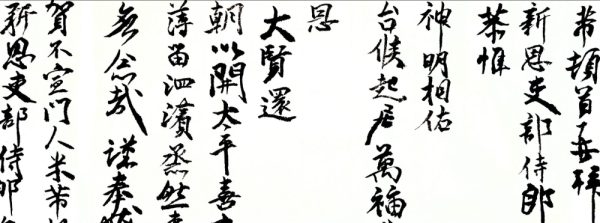 芾頓首再拜
新恩吏部侍郎
恭惟
神明相佑
台候起居萬福
恩
大賢還
朝以開太平喜
薄留泗濱烝然
無忘哉謹奉
賀不宣門人米芾
新恩吏部侍郎